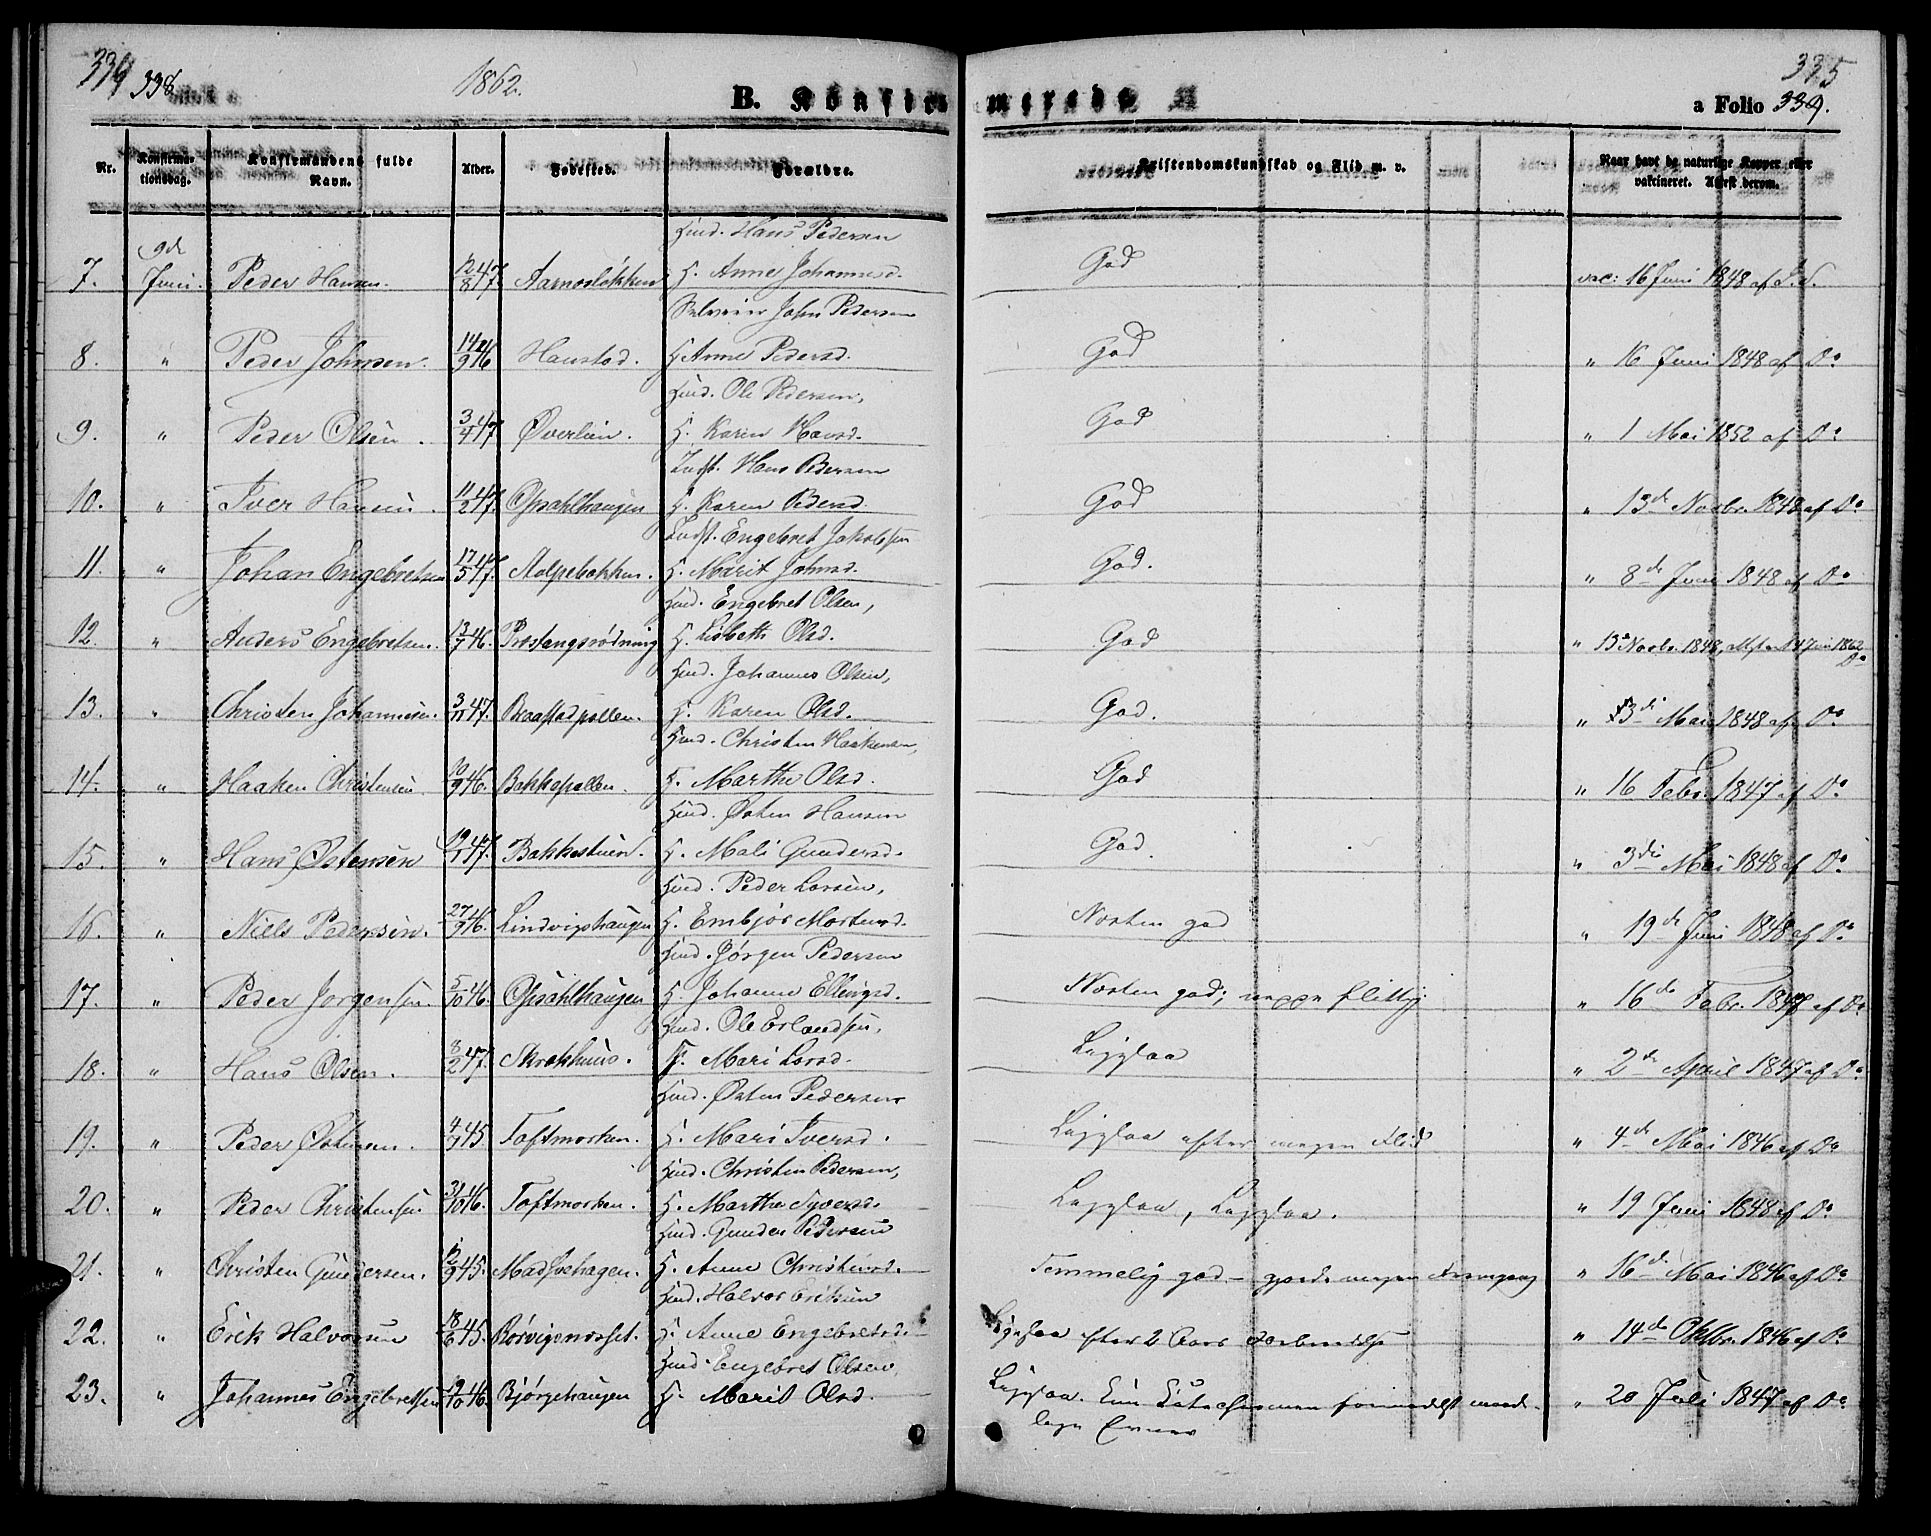 334 338 1862. 335
B. Konfirmerede a Folio 339.
Nr. Konfirmationsdag. Konfirmandens fulde Navn. Alder. Fødested. Forældre. Kristendomskundskab og Flid m. v. Naar havt de naturlige Kopper eller vakcineret. Attest derom.
Hmd. Hans Pedersen
7. 9de Juni. Peder Hansen. 12/8 47. Aarnesløkken H. Anne Johannesd. God vac: 16 Juni 1848 af S.S.
Selveier John Pedersen
8. " Peder Johnsen. 14/9 46 Haustad. H. Anne Pedersd. God " 16 Juni 1848 af Do
Hmd. Ole Pedersen,
9. " Peder Olsen. 3/4 47 Øverlien. H. Karen Hansd. God " 1 Mai 1852 af Do
Indst. Hans Pedersen
10. " Iver Hansen. 11/2 47. Opsahlhaugen H. Karen Pedersd. God " 13de Novbr. 1848 af Do
Indst. Engebret Jakobsen
11. " Johan Engebretsen 17/5 47. Stolpebakken. H. Marit Johnsd. God. " 8de Juni 1848 af Do
Hmd. Engebret Olsen,
12. " Anders Engebretsen. 13/7 46. Prestengsrødning H. Lisbeth Olsd. God " 13de Novbr. 1848, Juni 1862 Do
Hmd. Johannes Olsen,
13. " Christen Johannesen. 3/11 47. Braastadpallen. H. Karen Olsd. God. " 3die Mai 1848 af Do
Hmd. Christen Haakensen,
14. " Haaken Christensen 10/9 46. Bakkepallen. H. Marthe Olsd. God " 16 Febr. 1847 af Do
Hmd. Østen Hansen
15. " Hans Østensen 19/1 47. Bakkestuen. H. Mali Gundersd. God. " 3die Mai 1848 af Do
Hmd. Peder Larsen,
16. " Niels Pedersen. 27/9 46. Lindvigshaugen H. Embjør Mortensd. Næsten god " 19de Juni 1848 af Do
Hmd. Jørgen Pedersen
17. " Peder Jørgensen. 5/10 46. Opsahlhaugen H. Johanne Ellingsd. Næsten god; neppe flittig. " 16de Febr. 1847 af Do
Hmd. Ole Erlandsen,
18. " Hans Olsen. 8/2 47. Skrekhuus. H. Mari Larsd. Laggelaa " 2de April 1847 af Do
Hmd. Østen Pedersen
19. " Peder Østensen. 4/7 45. Toftmoeken. H. Mari Iversd. efter megen Flid " 4de Mai 1846 af Do
Hmd. Christen Pedersen,
20. " Peder Christensen 31/10 46. Toftmoeken. H. Marthe Syversd. " 19 Juni 1848 af Do
Hmd. Gunder Pedersen
21. " Christen Gundersen. 12/9 45. Madshehagen. H. Anne Christensd. Temmelig god – gjorde megen Fremgang " 16de Mai 1846 af Do
Hmd. Halvor Eriksen
22. " Erik Halvorsen 18/6 45. Børvigsmosset. H. Anne Engebretsd. efter 2 Aars Forberedelse " 14de Oktbr. 1846 af Do
Hmd. Engebret Olsen,
23. " Johannes Engebretsen 19/10 46. Bjørgehaugen H. Marit Olsd. " 20 Juli 1847 af Do